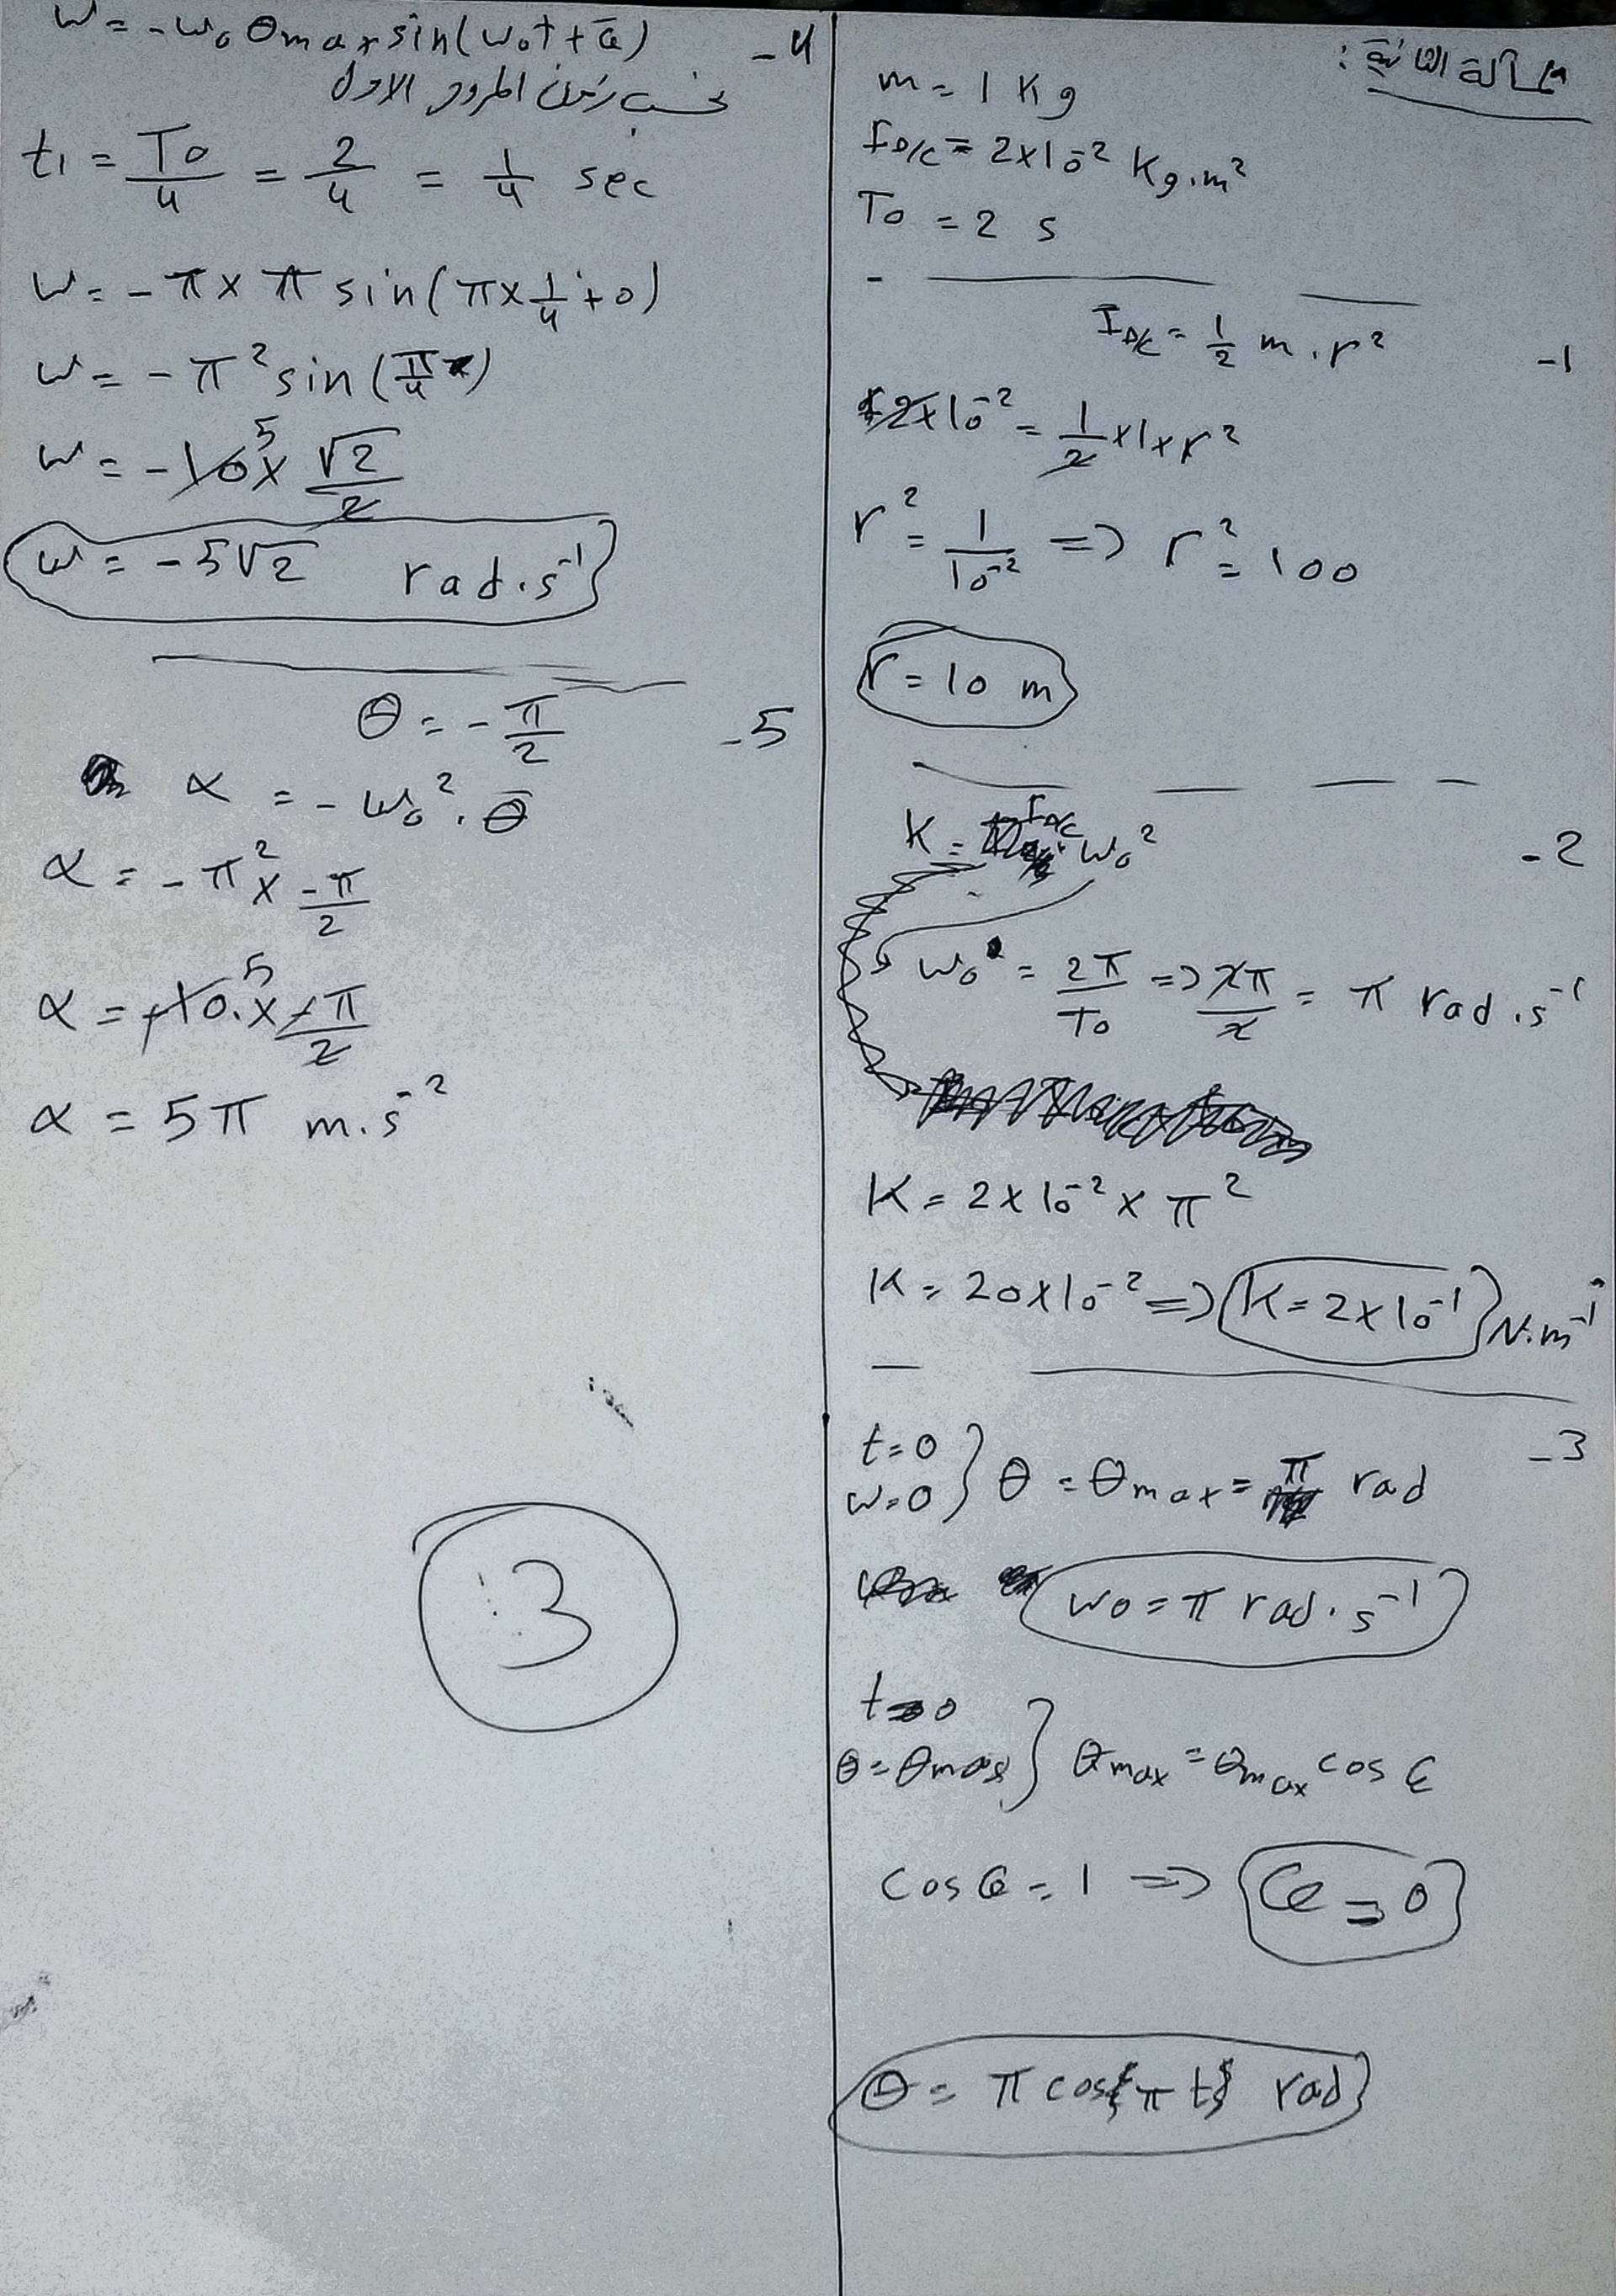 المسألة الثانية :
m = 1 Kg
I_{Δ/c} = 2×10^{-2} Kg.m²
T₀ = 2 s
-1
I_{Δ/c} = 1/2 m.r²
2×10^{-2} = 1/2 ×1×r²
r² = 1/10^{-2} => r² = 100
r = 10 m
-2
K = I_{Δ/c} W₀²
W₀ = 2π/T₀ => 2π/2 = π rad.s^{-1}
K = 2×10^{-2} × π²
K = 20×10^{-2} => K = 2×10^{-1} N.m^{-1}
-3
t=0
w=0 } θ = θmax = π rad
w₀ = π rad.s^{-1}
t=0
θ=θmax } θmax = θmax cos φ
cos φ = 1 => φ = 0
θ = π cos(π t) rad
-4
w = -w₀ θmax sin(w₀t + φ̄)
نحسب زمن المرور الاول
t₁ = T₀/4 = 2/4 = 1/4 sec
w = -π × π sin(π×1/4 + 0)
w = -π² sin(π/4)
w = -10 5 × √2/2
w = -5√2 rad.s^{-1}
-5
θ = -π/2
α = -w₀².θ̄
α = -π² × -π/2
α = -10 5 . × -π/2
α = 5π m.s^{-2}
3